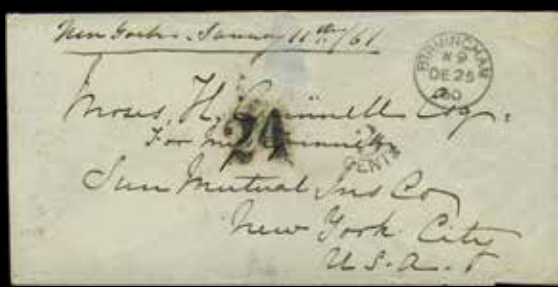 New York. January 11th/61
BIRMINGHAM
K 9
DE 25
60
Moses, H. Grinnell Esq.
For Mr. Grinnell
24
CENTS
Sun Mutual Ins Co
New York City
U.S.A.